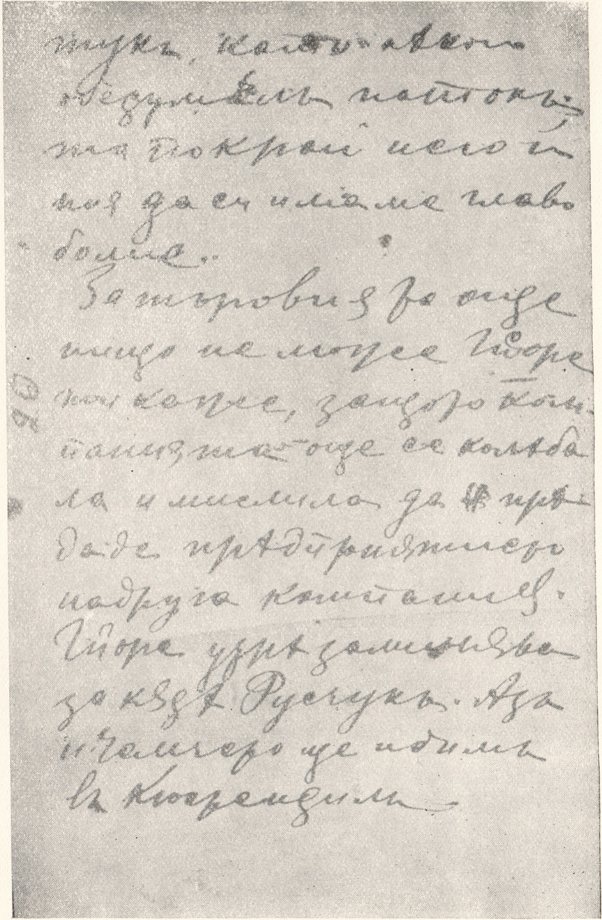 тукъ, като нѣкои
обезумѣлъ
та покрай него и
ния да си имаме главо
болие..
За търговията още
нищо не може Гйоре
ни каже, защото Ком-
панията още се колѣба
ла и мислила да прѣ
даде прѣдприятието
на друга компания.
Гйоре утрѣ заминява
за къдѣ Русчукъ. Азъ
и Чамчето ще идимъ
въ Кюстендилъ
20